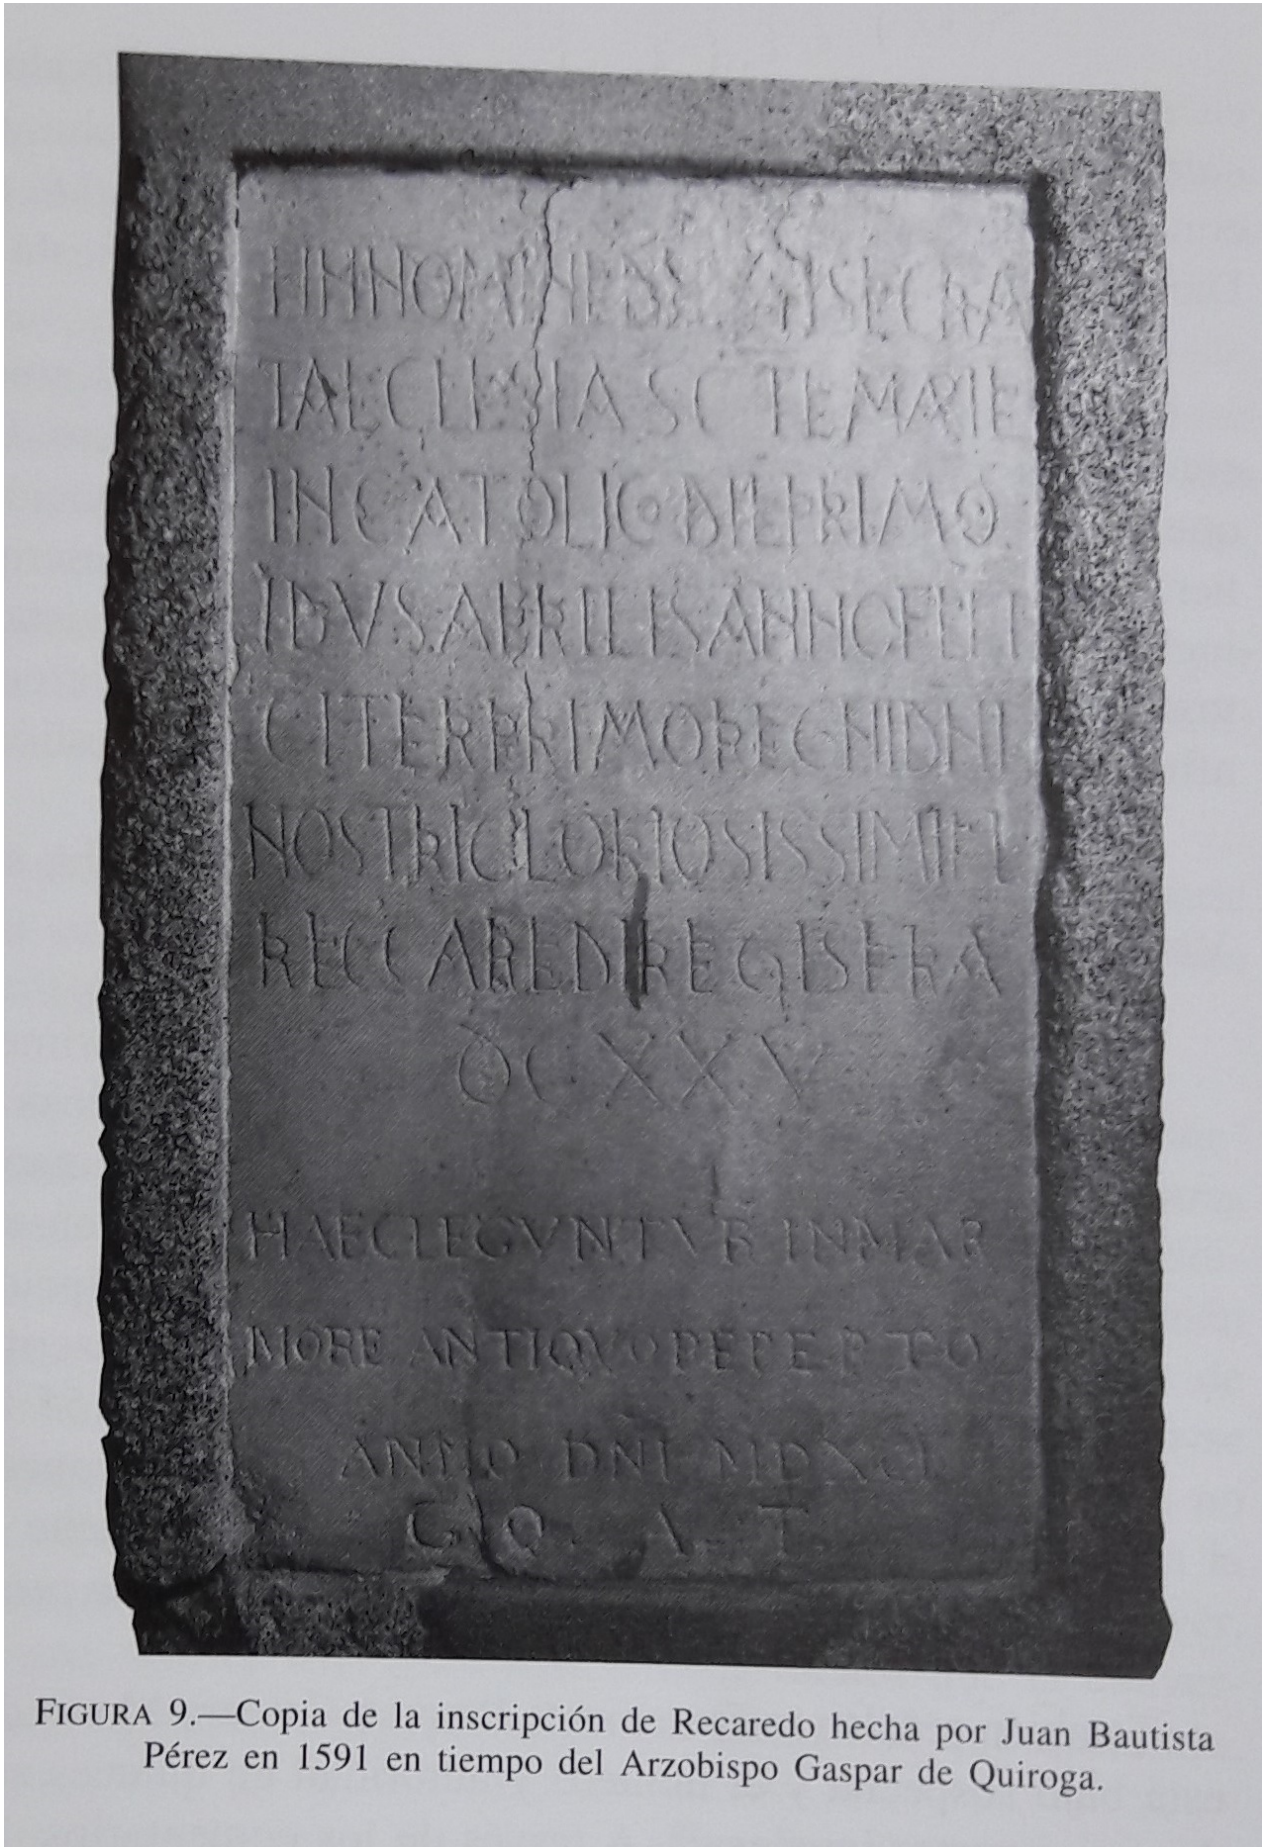 IN NOMINE DNI CONSECRA
TA ECLESIA SCTE MARIE
IN CATOLICO DIE PRIMO
IDVS APRILIS ANNO FELI
CITER PRIMO REGNI DNI
NOSTRI GLORIOSISSIMI FL
RECCAREDI REGIS ERA
DCXXV
HAEC LEGVNTVR IN MAR
MORE ANTIQVO REPERTO
ANNO DNI MDXCI
G. Q. A. T.
FIGURA 9.—Copia de la inscripción de Recaredo hecha por Juan Bautista
Pérez en 1591 en tiempo del Arzobispo Gaspar de Quiroga.